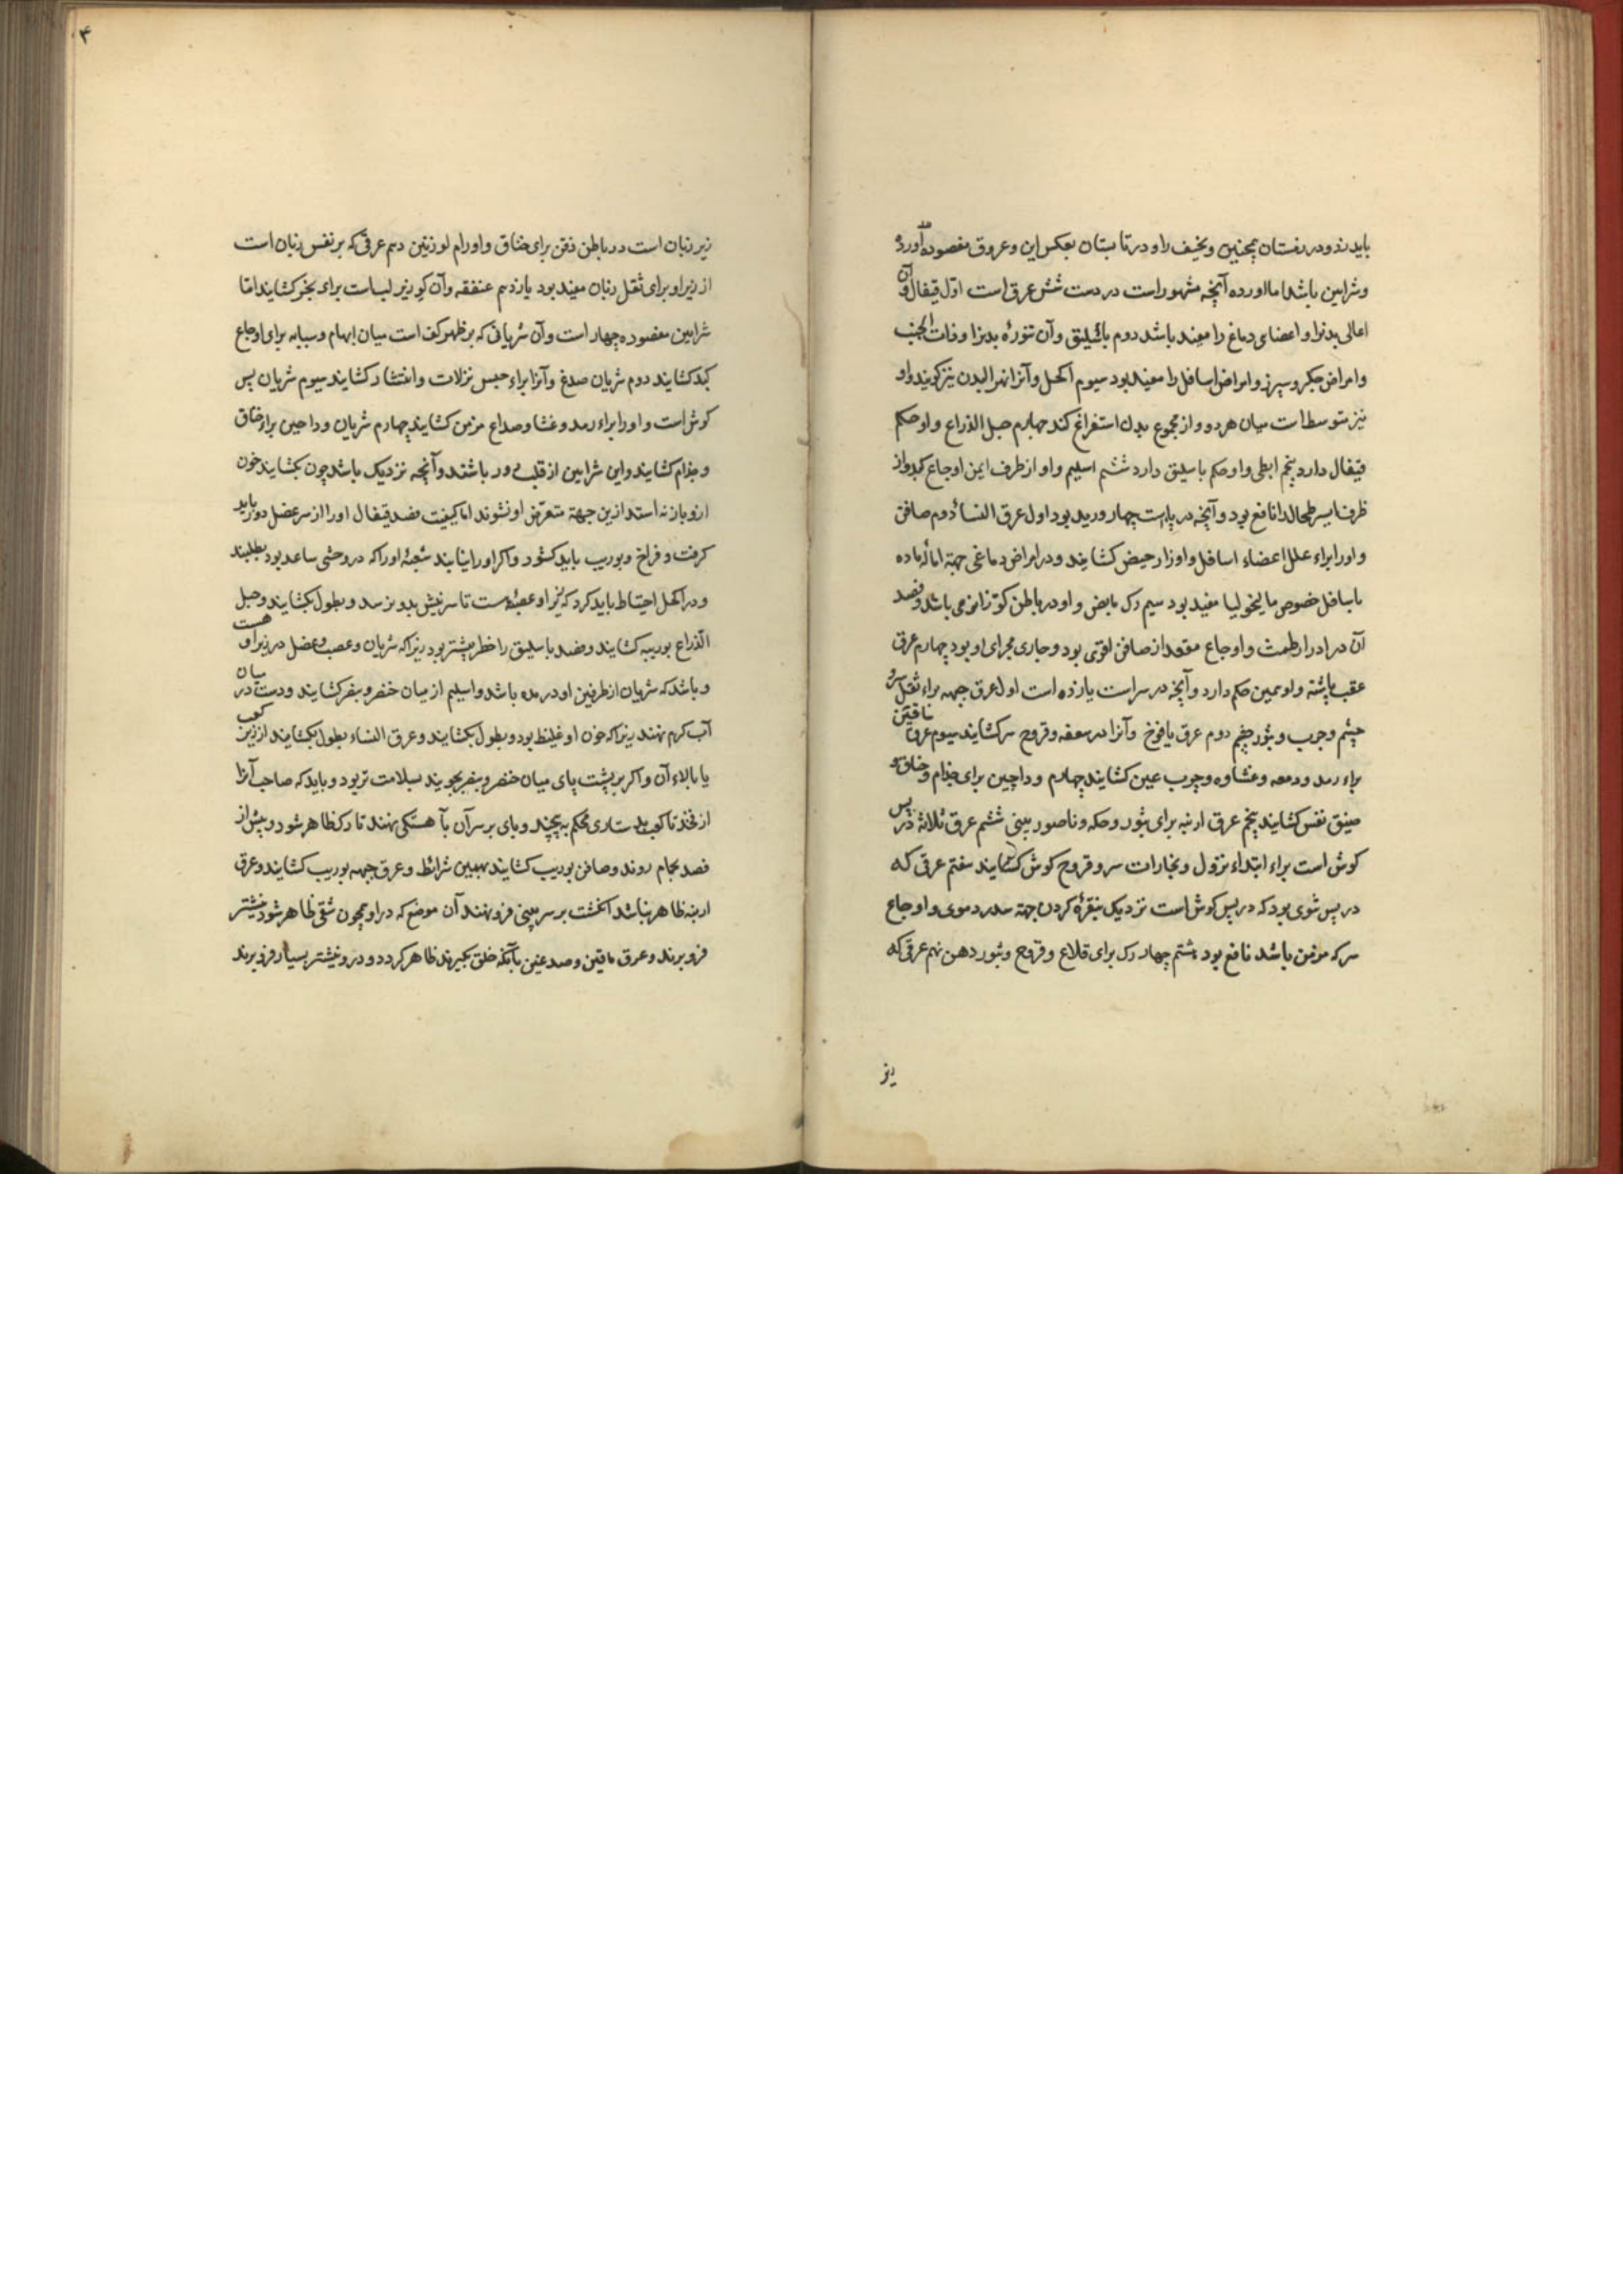 باید زد و در زمستان همچنین و نخیف را و در تابستان بعکس این و عروق مفصوده اورده
و شرایین باشد اما اورده آنچه مشهور است در دست شش عرق است اول قیفال و آن
اعالی بدنرا و اعضای دماغ را مفید باشد دوم باسلیق و آن تنورهٔ بدنرا و ذات الجنب
و امراض جگر و سپرز و امراض اسافل را مفید بود سیوم اکحل و آنرا نهر البدن نیز گویند و او
نیز متوسط است میان هر دو و از مجموع بدن استفراغ کند چهارم حبل الذراع و او حکم
قیفال دارد پنجم ابطی و او حکم باسلیق دارد ششم اسیلم و او از طرف ایمن اوجاع کبد و از
طرف ایسر طحال را نافع بود و آنچه در پا است چهار ورید بود اول عرق النسا دوم صافن
و او را براء علل اعضاء اسافل و ادرار حیض کشایند و در امراض دماغی جهة امالهٔ ماده
باسافل خصوص مالیخولیا مفید بود سیم رک مابض و او در باطن زانو می باشد و فصد
آن در ادرار طمث و اوجاع مقعد از صافن اقوی بود و جاری مجرای او بود چهارم عرق
عقب پاشنه و او همین حکم دارد و آنچه در سر است یازده است اول عرق جبهه براء ثقل سر و
چشم و جرب و بثور چشم دوم عرق یافوخ و آنرا در سعفه و قروح سر کشایند سیوم عرق ماقین
براء رمد و دمعه و غشاوه و جرب عین کشایند چهارم وداجین برای جذام و خناق و
ضیق نفس کشایند پنجم عرق ارنبه برای بثور و حکه و ناصور بینی ششم عرق ثلاثه در پس
کوش است براء ابتداء نزول و بخارات سر و قروح کوش کشایند هفتم عرقی که
در پس شوی بود که در پس کوش است نزدیک بنقرهٔ کردن جهة سدر دموی و اوجاع
سر که مزمن باشد نافع بود هشتم چهار رک برای قلاع و قروح و بثور دهن نهم عرقی که
یز
۴
زیر زبان است در باطن ذقن برای خناق و اورام لوزتین دهم عرقی که بر نفس زبان است
از زیر او برای ثقل زبان مفید بود یازدهم عنفقه و آن کو زیر لب است برای بخر کشایند اما
شرایین مفصوده چهار است و آن شریانی که بر ظهر کف است میان ابهام و سبابه برای اوجاع
کبد کشایند دوم شریان صدغ و آنرا براء حبس نزلات و انتشار کشایند سیوم شریان پس
کوش است و او را براء رمد و غشا و صداع مزمن کشایند چهارم شریان وداجین براء خناق
و جذام کشایند و این شرایین از قلب دور باشند و آنچه نزدیک باشد چون بکشایند خون
ازو باز نه استد ازین جهة متعرض او نشوند اما کیفیت فصد قیفال او را از سر عضل دور باید
کرفت و فراخ و بوریب باید کشود و اکر او را نیابند شعبهٔ او را که در وحشی ساعد بود بطلبند
و در اکحل احتیاط باید کرد که زیر او عصبهٔ هست تا سر نیش بدو نرسد و بطول بکشایند و حبل
الذراع بوریب کشایند و فصد باسلیق را خطر بیشتر بود زیراکه شریان و عصب و عضل در زیر او هست
و باشد که شریان از طرفین او در مده باشد و اسیلم از میان خنصر و بنصر کشایند و دست در میان
آب کرم نهند زیراکه خون او غلیظ بود و بطول بکشایند و عرق النساء بطول بکشایند از زیر کعب
یا بالاء آن و اکر بر پشت پای میان خنصر و بنصر بجویند بسلامت تر بود و باید که صاحب آنرا
از فخذ تا کعب بدستاری محکم به پیچند و پای بر سر آن بآهستکی نهند تا رک ظاهر شود و پیش از
فصد بحمام روند و صافن بوریب کشایند بهمین شرائط و عرق جبهه بوریب کشایند و عرق
ارنبه ظاهر نباشد انکشت بر سر بینی فرو نهند آن موضع که در او همچون شقی ظاهر شود نیشتر
فرو برند و عرق ماقین و صدغین بآنکه خلق بکیرند ظاهر کردد و درو نیشتر بسیار فرو برند